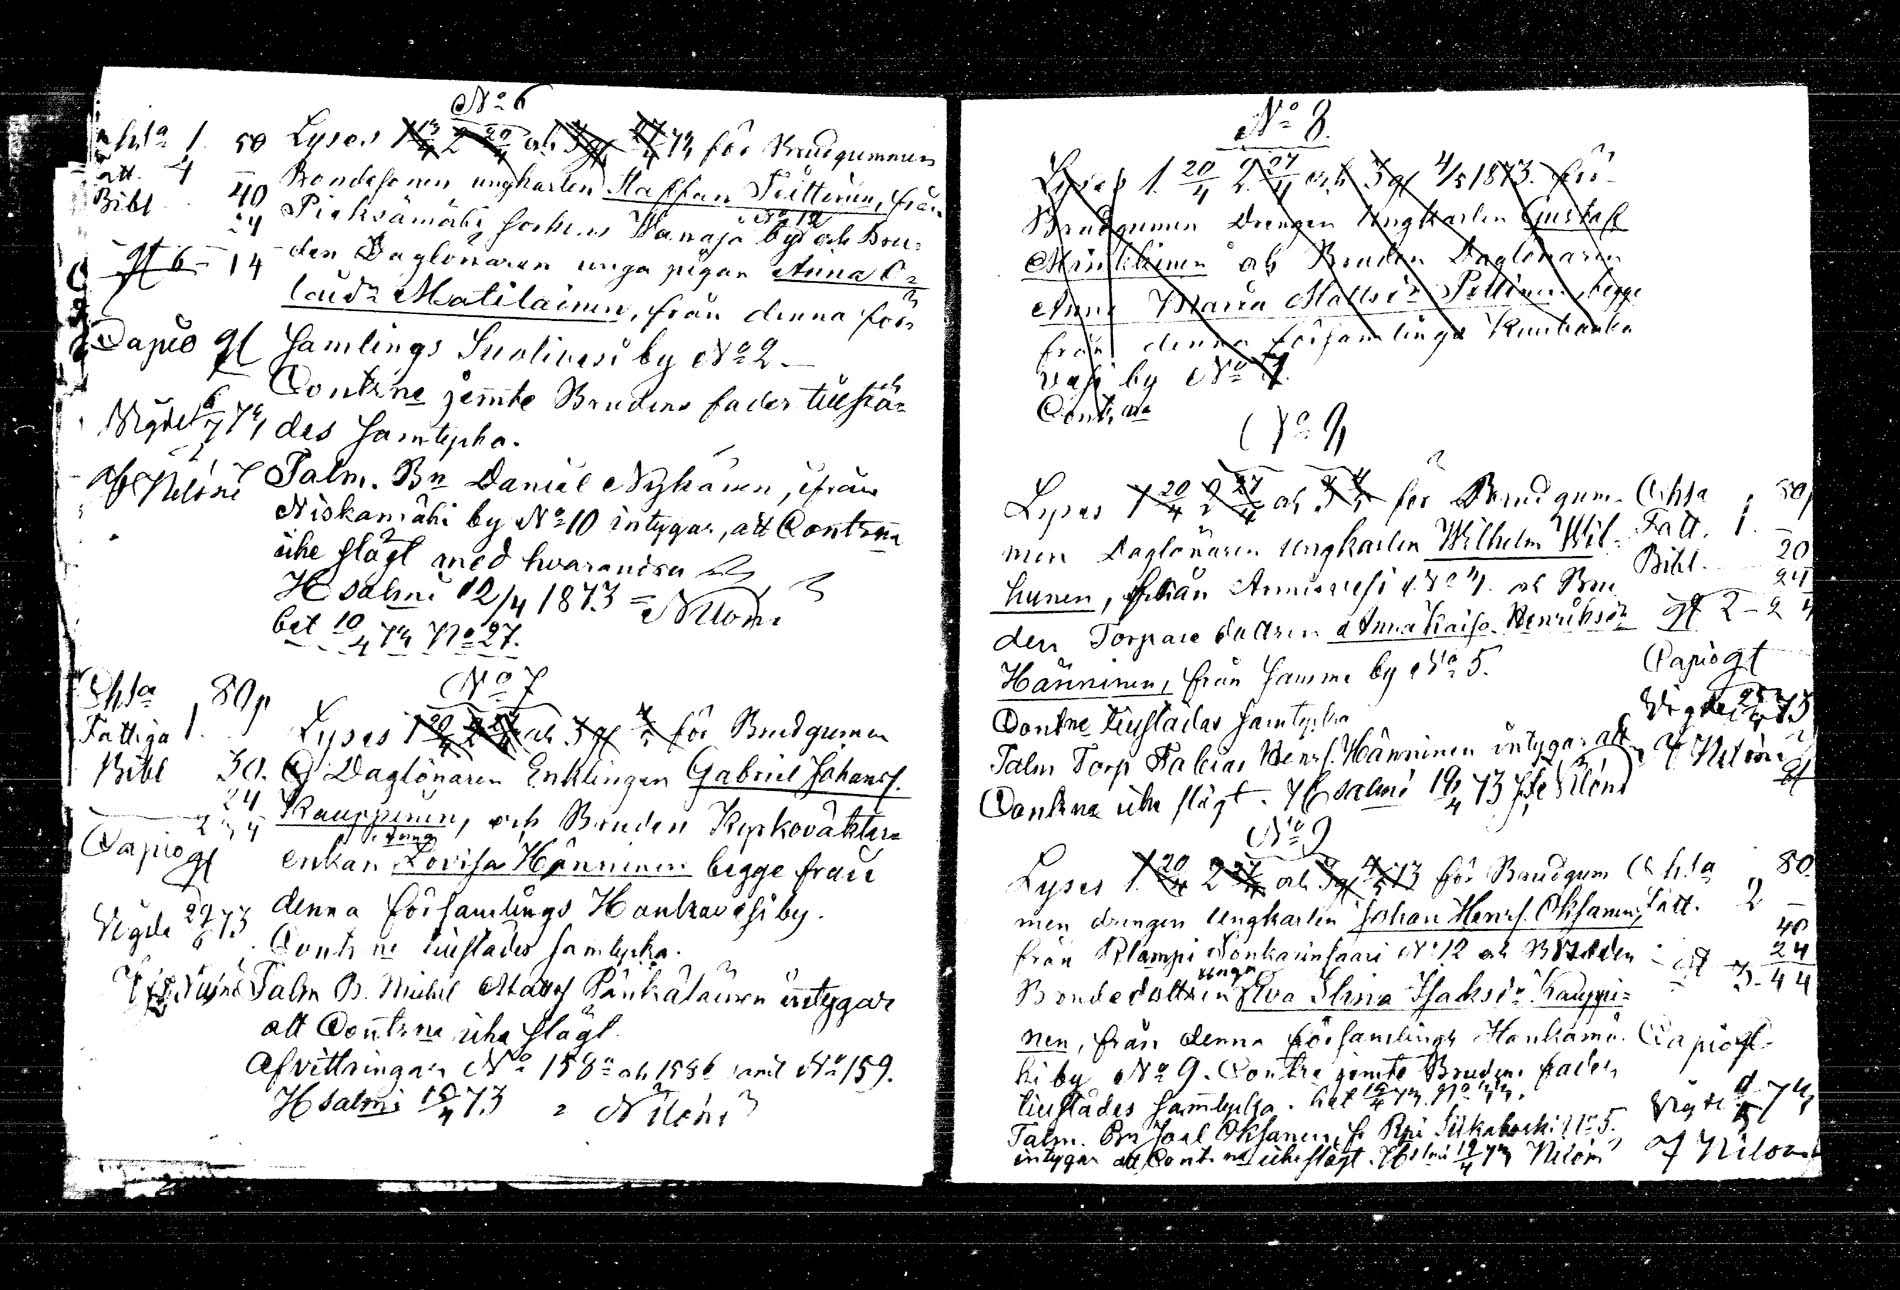 No 6
Lyses 1 13/4 2 20/4 och 3 gg 27/4 73 för Brudgummen
Bondesonen ungkarlen Staffan Tuittinen, från
Pieksämäki sockens Wanaja by No 12 och Bru-
den Daglönaren unga pigan Anna O-
laidr Matilainen, från denna för-
samlings Suolivesi by No 2
Contrne jemte Brudens fader tillstä-
des samtycka.
Talm. Bn Daniel Nykänen, ifrån
Niskamäki by No 10 intygar, att Contrne
icke slägt med hvarandra
Hsalmi 12/4 1873 = Niloni
bet 10/4 73 No 27.
50
1
4
Bibl 40
24
gt 6 - 14
Capio gt
Vigde 6/7 73
Nilóni
No 7
Lyses 1 20/4 2 27/4 och 3 gg 4/5 för Brudgumen
Daglönaren Enklingen Gabriel Johanss.
Kauppinen, och Bruden Kyrkoväktare
enkan Lovisa Hänninen begge från
denna församlings Hankavesi by.
Contrne tillstädes samtycka.
Talm B. Mikel Mattss Pänkäläinen intygar
att Contrne icke slägt.
Afvittringar No 158a och 158b samt No 159.
Hsalmi 19/4 73 = Nilóni
Chsa 80 p
Fattiga 1.
Bibl 30.
24
Capio gt
Vigde 29/6 73
No 8
Lyses 1. 20/4 2. 27/4 och 3 gg 4/5 1873. för
Brudgumen Drengen Ungkarlen Gustaf
Minkkinen och Bruden Daglönaren
Anna Maria Mattsdr Pettinen, begge
från denna församlings Kuvtanka
vasi by No 7.
Contrne
No 9
Lyses 1 20/4 2 27/4 och 3 4/5 för Brudgum-
men Daglönaren Ungkarlen Wilhelm Wil-
hunen, från Armisvesi No 4. och Bru
den Torpare dottren Anna Kaisa Henriksdr
Hänninen, från samma by No 5.
Contrne tillstädes samtycka
Talm Torp Tabias Henrs. Hänninen intygar att
Contrne icke slägt. Hsalmi 19/4 73 Nilóni
Chsa 80 p
Fatt. 1.
Bibl. 20
24
gt 2 - 24
Capio gt
Vigde 73
Nilóni
No 9
Lyses 1. 20/4 2 27/4 och 3 gg 4/5 73 för Brudgum
men drengen Ungkarlen Johan Henrs. Oksanen,
från Rlampi Konkarinsaari No 12 och Bruden
Bondedottren unga Eva Stina Isaksdr Kauppi-
nen, från denna församlings Hankamä-
ki by No 9. Contrne jemte Brudens fader
tillstädes samtycka. bet 19/4 73
Talm. Bn Joel Oksanen, fr Rpi Siikakoski No 5.
intygar att Contrne icke slägt. Hsalmi 19/4 73 Nilóni
Chsa 80
Fatt. 2
40
24
gt 3 - 44
Capio gt
Vigde 73
Nilóni